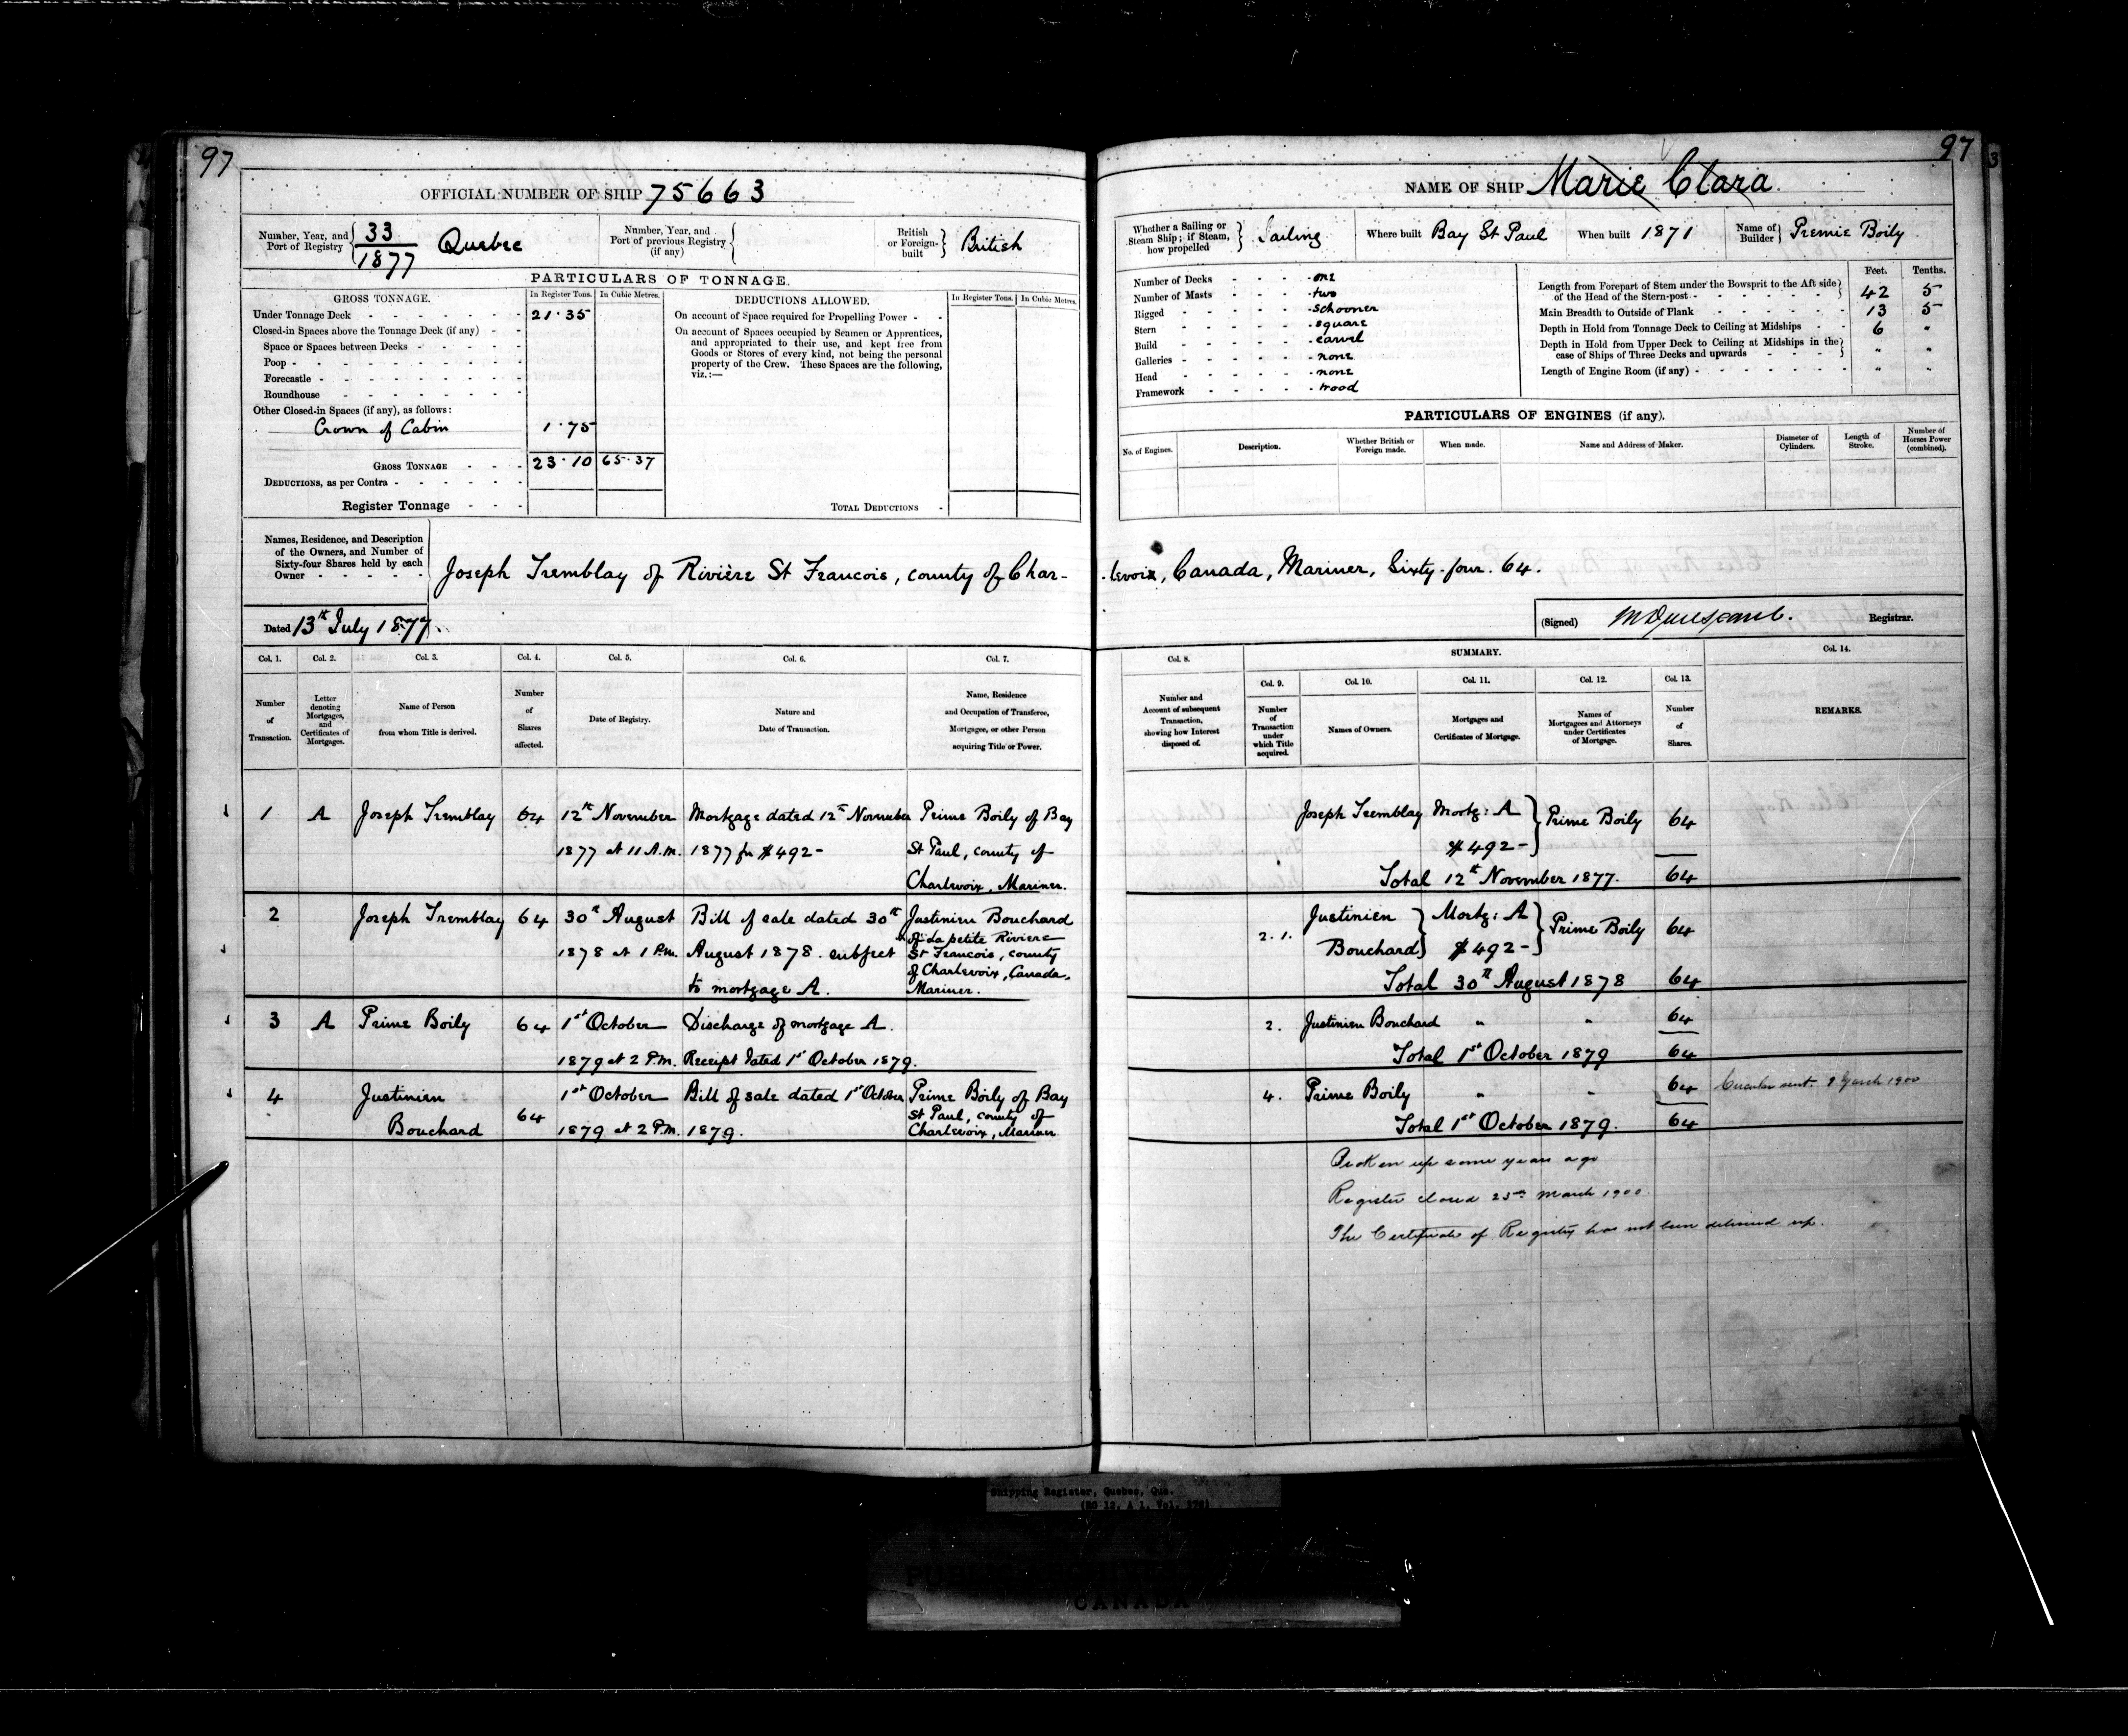 97
OFFICIAL NUMBER OF SHIP 75663
Number, Year, and Port of Registry 33/1877 Quebec
Number, Year, and Port of previous Registry (if any)
British or Foreign-built British
PARTICULARS OF TONNAGE.
GROSS TONNAGE. In Register Tons. In Cubic Metres.
Under Tonnage Deck 21.35
Closed-in Spaces above the Tonnage Deck (if any)
Space or Spaces between Decks
Poop
Forecastle
Roundhouse
Other Closed-in Spaces (if any), as follows:
Crown of Cabin 1.75
GROSS TONNAGE 23.10 65.37
DEDUCTIONS, as per Contra
Register Tonnage
DEDUCTIONS ALLOWED. In Register Tons. In Cubic Metres.
On account of Space required for Propelling Power
On account of Spaces occupied by Seamen or Apprentices,
and appropriated to their use, and kept free from
Goods or Stores of every kind, not being the personal
property of the Crew. These Spaces are the following,
viz.:—
TOTAL DEDUCTIONS
Names, Residence, and Description
of the Owners, and Number of
Sixty-four Shares held by each
Owner
Joseph Tremblay of Rivière St Francois, county of Char-
Dated 13th July 1877
Col. 1. Col. 2. Col. 3. Col. 4. Col. 5. Col. 6. Col. 7.
Number of Transaction.
Letter denoting Mortgages, and Certificates of Mortgages.
Name of Person from whom Title is derived.
Number of Shares affected.
Date of Registry.
Nature and Date of Transaction.
Name, Residence and Occupation of Transferee, Mortgagee, or other Person acquiring Title or Power.
1 A Joseph Tremblay 64 12th November Mortgage dated 12th November Prime Boily of Bay
1877 at 11 A.M. 1877 for $492- St Paul, county of
Charlevoix, Mariner.
2 Joseph Tremblay 64 30th August Bill of sale dated 30th Justinien Bouchard
of La petite Riviere
1878 at 1 P.M. August 1878. subject St Francois, county
of Charlevoix, Canada,
to mortgage A. Mariner.
3 A Prime Boily 64 1st October Discharge of mortgage A.
1879 at 2 P.M. Receipt dated 1st October 1879.
4 Justinien 1st October Bill of sale dated 1st October Prime Boily of Bay
64 St Paul, county of
Bouchard 1879 at 2 P.M. 1879. Charlevoix, Mariner
97
3
NAME OF SHIP Marie Clara
Whether a Sailing or Steam Ship; if Steam, how propelled Sailing
Where built Bay St Paul
When built 1871
Name of Builder Premie Boily
Number of Decks one
Number of Masts two
Rigged Schooner
Stern square
Build carvel
Galleries none
Head none
Framework wood
Feet. Tenths.
Length from Forepart of Stem under the Bowsprit to the Aft side
of the Head of the Stern-post 42 5
Main Breadth to Outside of Plank 13 5
Depth in Hold from Tonnage Deck to Ceiling at Midships 6 "
Depth in Hold from Upper Deck to Ceiling at Midships in the
case of Ships of Three Decks and upwards " "
Length of Engine Room (if any) " "
PARTICULARS OF ENGINES (if any).
No. of Engines. Description. Whether British or Foreign made. When made. Name and Address of Maker. Diameter of Cylinders. Length of Stroke. Number of Horses Power (combined).
levoix, Canada, Mariner, Sixty-four. 64.
(Signed) Registrar.
Col. 8. SUMMARY. Col. 14.
Col. 9. Col. 10. Col. 11. Col. 12. Col. 13.
Number and Account of subsequent Transaction, showing how Interest disposed of.
Number of Transaction under which Title acquired.
Names of Owners.
Mortgages and Certificates of Mortgage.
Names of Mortgagees and Attorneys under Certificates of Mortgage.
Number of Shares.
REMARKS.
Joseph Tremblay Mortg: A Prime Boily 64
$492-
Total 12th November 1877. 64
2. 1. Justinien Mortg: A Prime Boily 64
Bouchard $492-
Total 30th August 1878 64
2. Justinien Bouchard " " 64
Total 1st October 1879 64
4. Prime Boily " " 64 Circular sent. 9 March 1900
Total 1st October 1879. 64
Broken up some years ago
Register closed 25th March 1900.
The Certificate of Registry has not been delivered up.
Shipping Register, Quebec, Que.
(RG 12, A 1, Vol. )
PUBLIC
CANADA